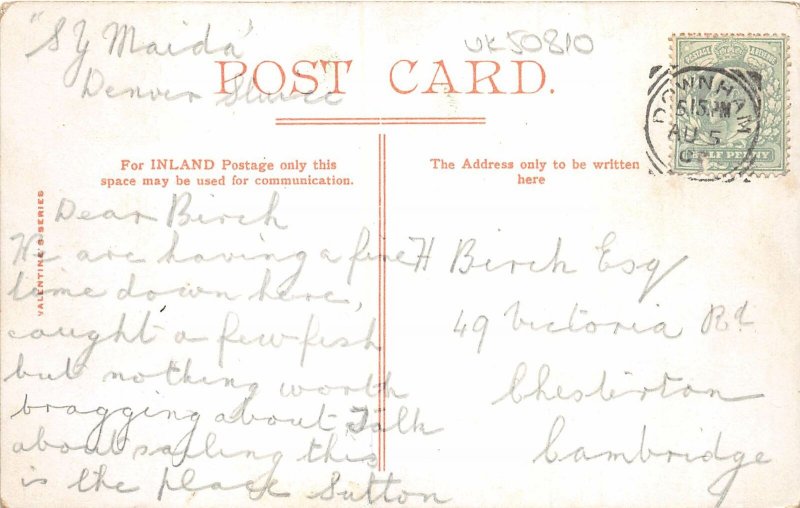 "SY Maida"
Denver Sluice
UK50810
POST CARD.
For INLAND Postage only this
space may be used for communication.
The Address only to be written
here
VALENTINE'S SERIES
DOWNHAM
5.15PM
AU 5
POSTAGE
HALF PENNY
Dear Birch
We are having a fine
time down here,
caught a few fish
but nothing worth
bragging about Talk
about sailing this
is the place Sutton
H Birch Esq
49 Victoria Rd
Chesterton
Cambridge